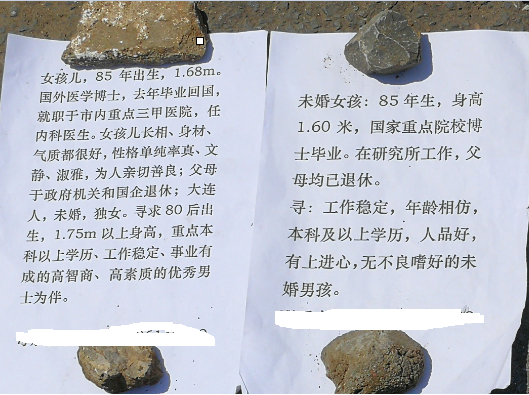 女孩儿，85 年出生，1.68m。
国外医学博士，去年毕业回国，
就职于市内重点三甲医院，任
内科医生。女孩儿长相、身材、
气质都很好，性格单纯率真、文
静、淑雅，为人亲切善良；父母
于政府机关和国企退休；大连
人，未婚，独女。寻求 80 后出
生，1.75m 以上身高，重点本
科以上学历、工作稳定、事业有
成的高智商、高素质的优秀男
士为伴。
未婚女孩：85 年生，身高
1.60 米，国家重点院校博
士毕业。在研究所工作，父
母均已退休。
寻：工作稳定，年龄相仿，
本科及以上学历，人品好，
有上进心，无不良嗜好的未
婚男孩。